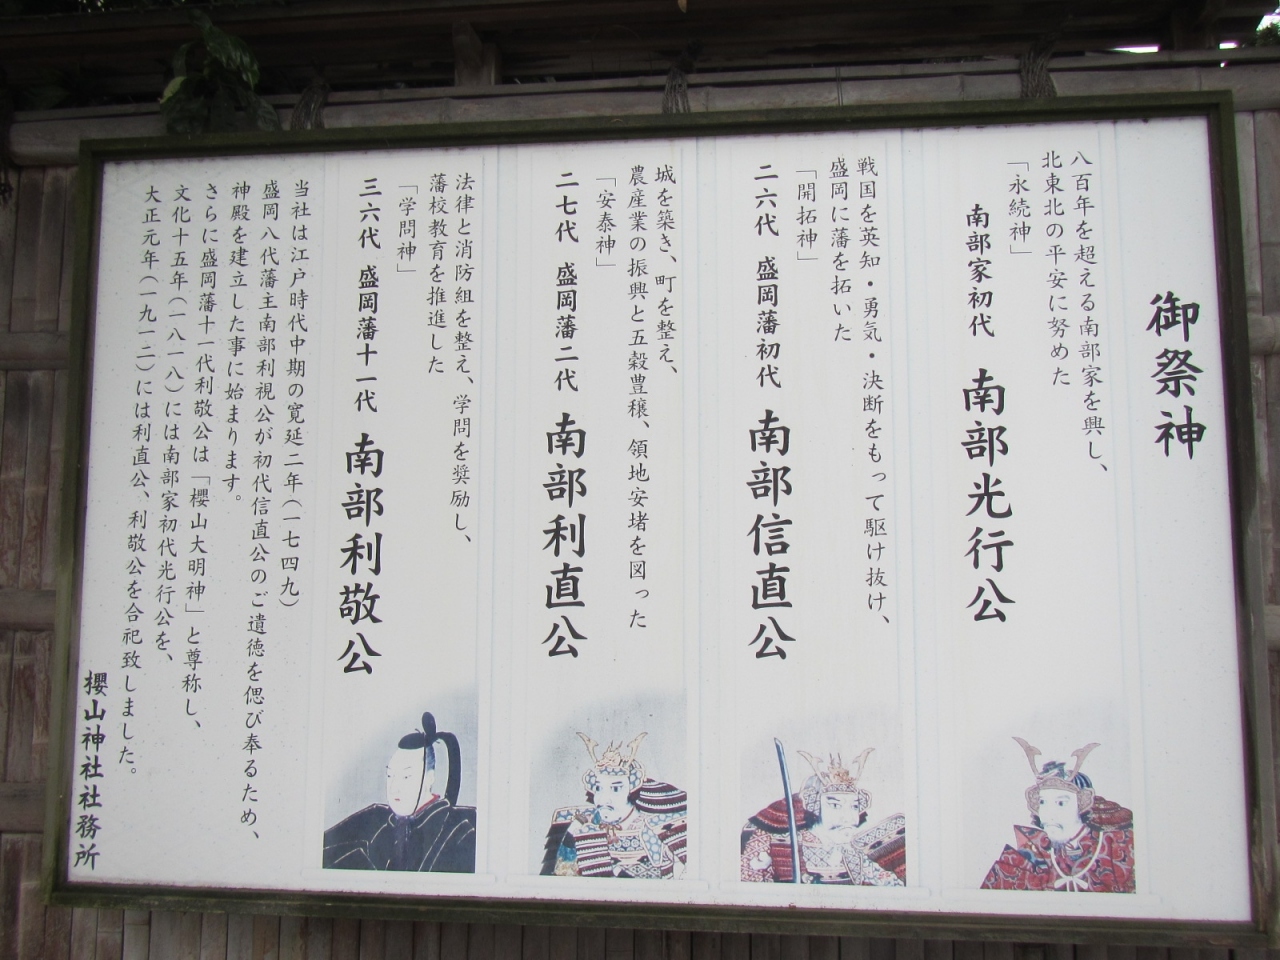 御祭神
八百年を超える南部家を興し、
北東北の平安に努めた
「永続神」
南部家初代 南部光行公
戦国を英知・勇気・決断をもって駆け抜け、
盛岡に藩を拓いた
「開拓神」
二六代 盛岡藩初代 南部信直公
城を築き、町を整え、
農産業の振興と五穀豊穣、領地安堵を図った
「安泰神」
二七代 盛岡藩二代 南部利直公
法律と消防組を整え、学問を奨励し、
藩校教育を推進した
「学問神」
三六代 盛岡藩十一代 南部利敬公
当社は江戸時代中期の寛延二年(一七四九)
盛岡八代藩主南部利視公が初代信直公のご遺徳を偲び奉るため、
神殿を建立した事に始まります。
さらに盛岡藩十一代利敬公は「櫻山大明神」と尊称し、
文化十五年(一八一八)には南部家初代光行公を、
大正元年(一九一二)には利直公、利敬公を合祀致しました。
櫻山神社社務所